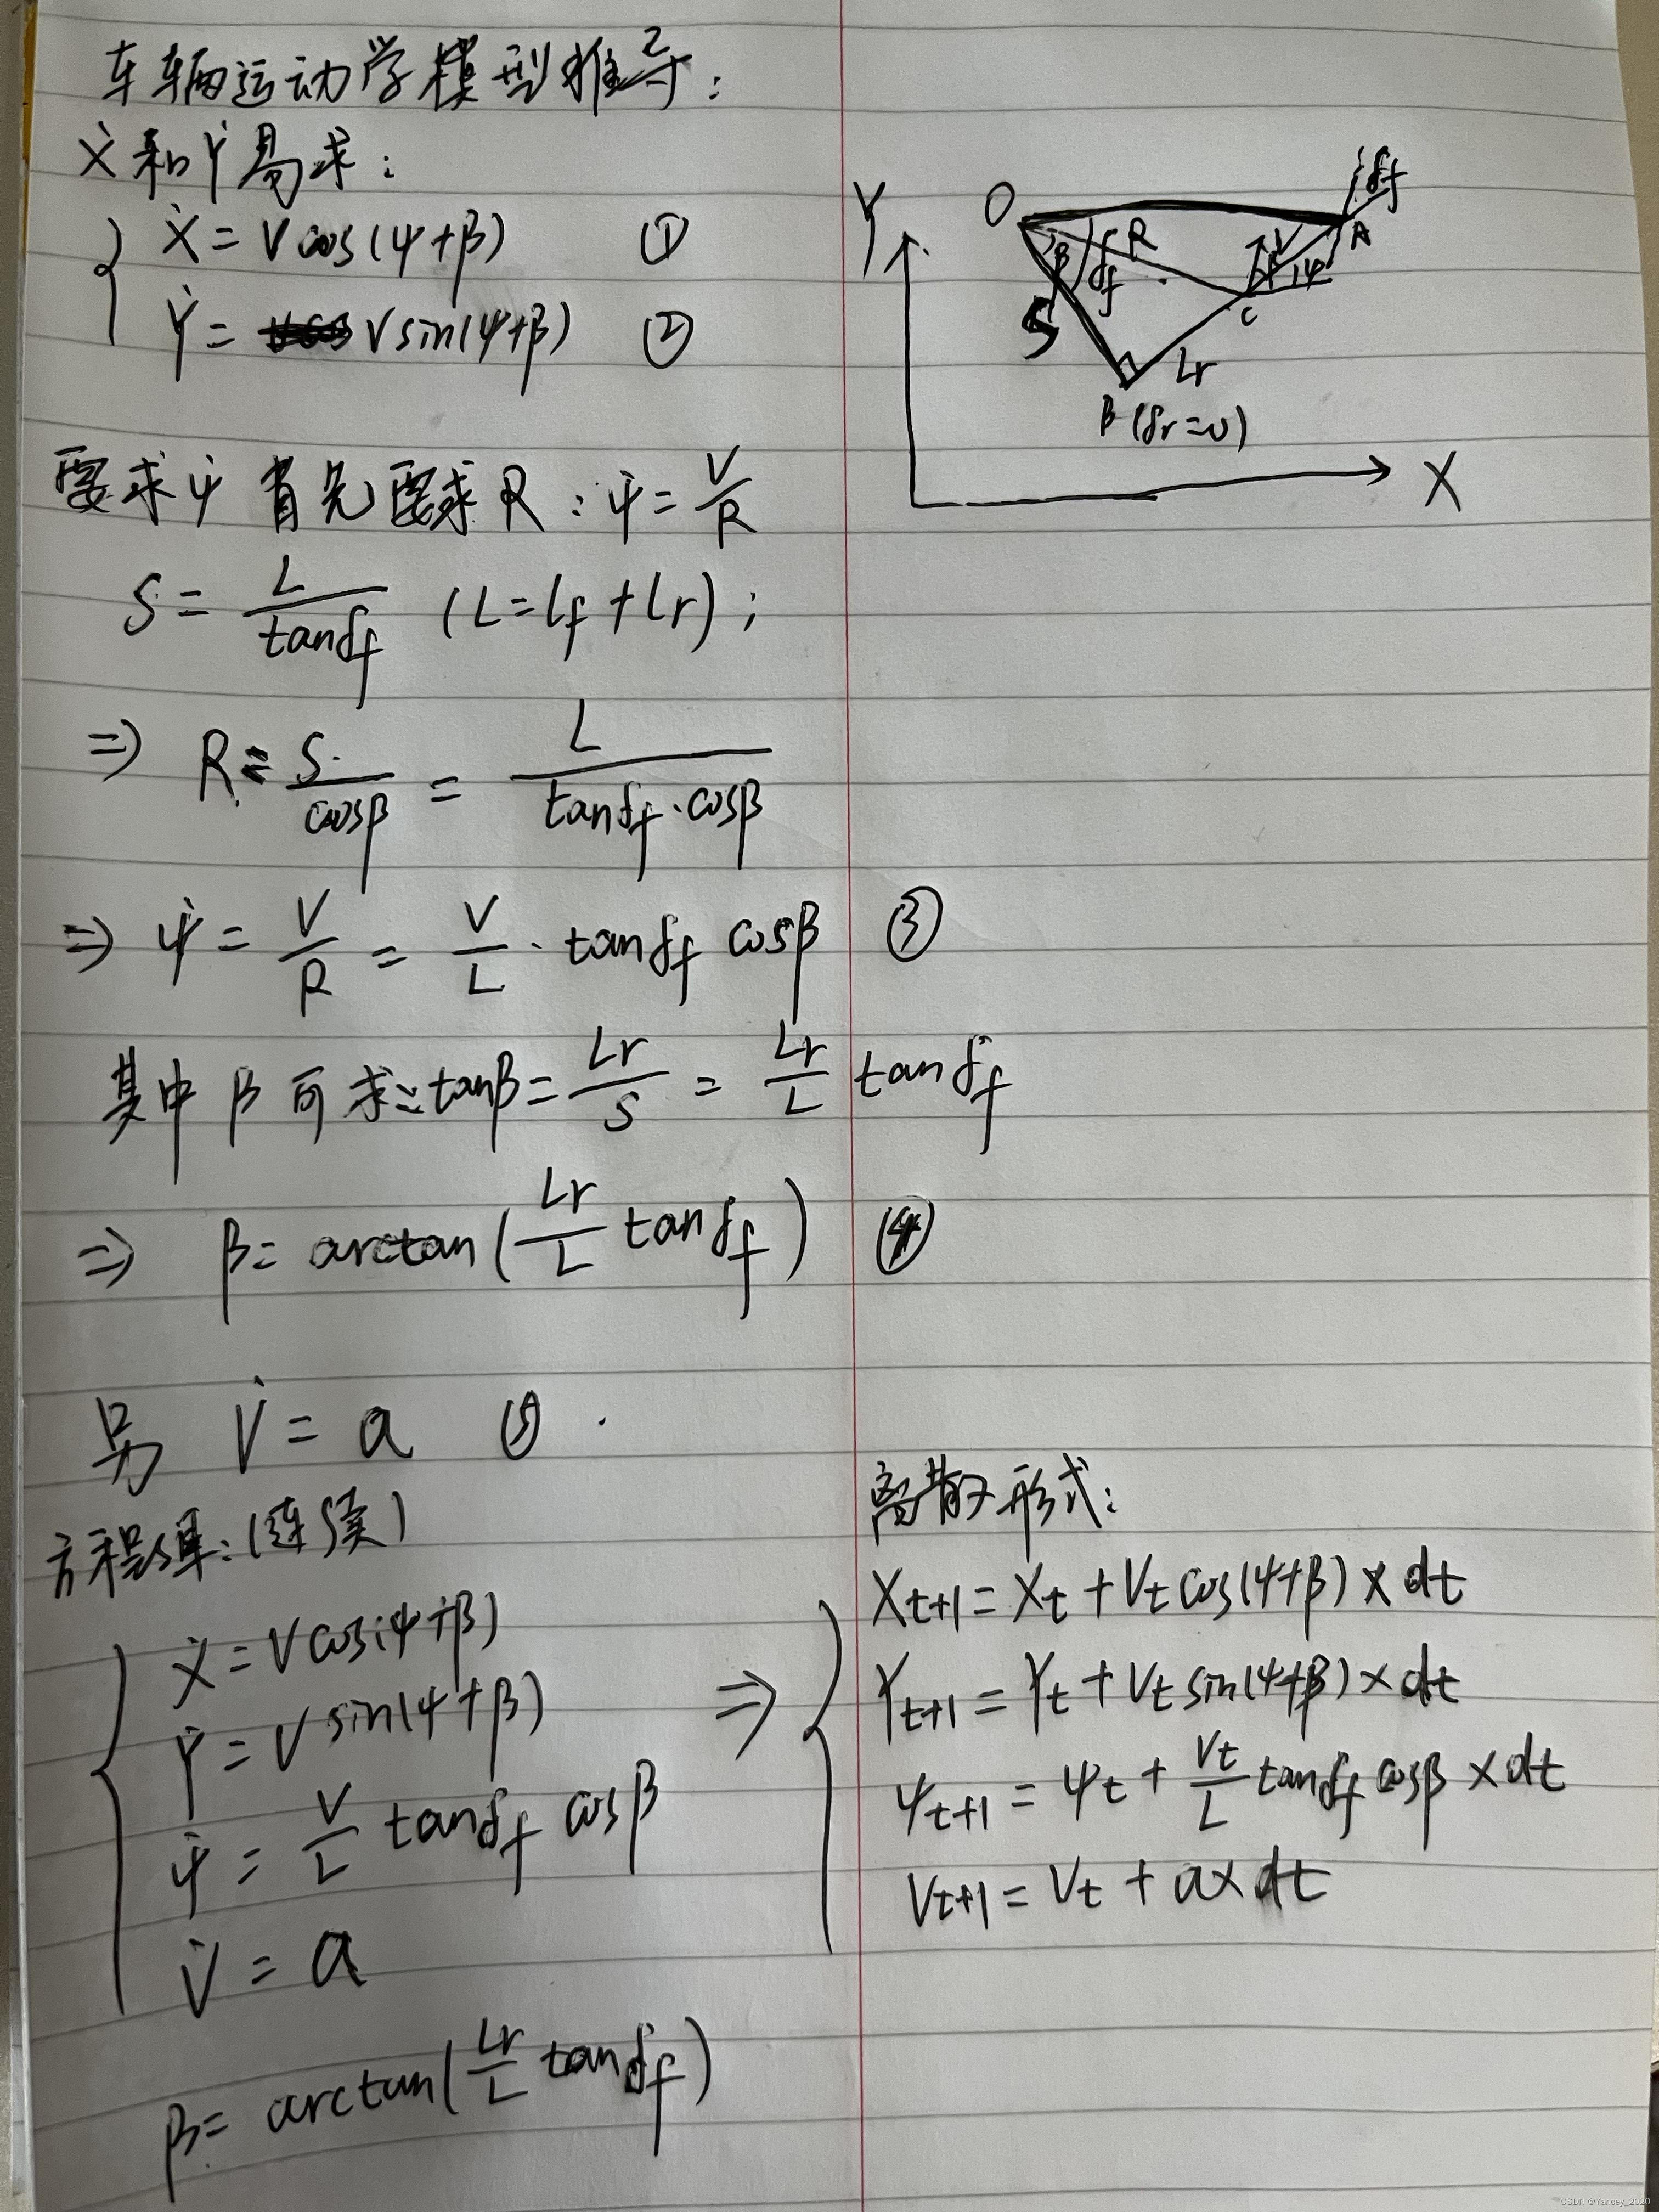 车辆运动学模型推导:
Ẋ和Ẏ易求:
Ẋ = V cos(ψ+β) ①
Ẏ = V sin(ψ+β) ②
Y
O
R
β
δf
S
V
ψ
C
A
δf
Lr
B (δr=0)
X
要求ψ̇ 首先要求R: ψ̇ = V/R
S = L/tanδf (L=lf+lr);
⇒ R = S/cosβ = L/(tanδf·cosβ)
⇒ ψ̇ = V/R = V/L · tanδf cosβ ③
其中β可求: tanβ = Lr/S = Lr/L tanδf
⇒ β = arctan(Lr/L tanδf) ④
另 V̇ = a ⑤
方程组:(连续)
Ẋ = V cos(ψ+β)
Ẏ = V sin(ψ+β)
ψ̇ = V/L tanδf cosβ
V̇ = a
β = arctan(Lr/L tanδf)
⇒
离散形式:
Xt+1 = Xt + Vt cos(ψ+β) × dt
Yt+1 = Yt + Vt sin(ψ+β) × dt
ψt+1 = ψt + Vt/L tanδf cosβ × dt
Vt+1 = Vt + a × dt
CSDN @Yancey_2020